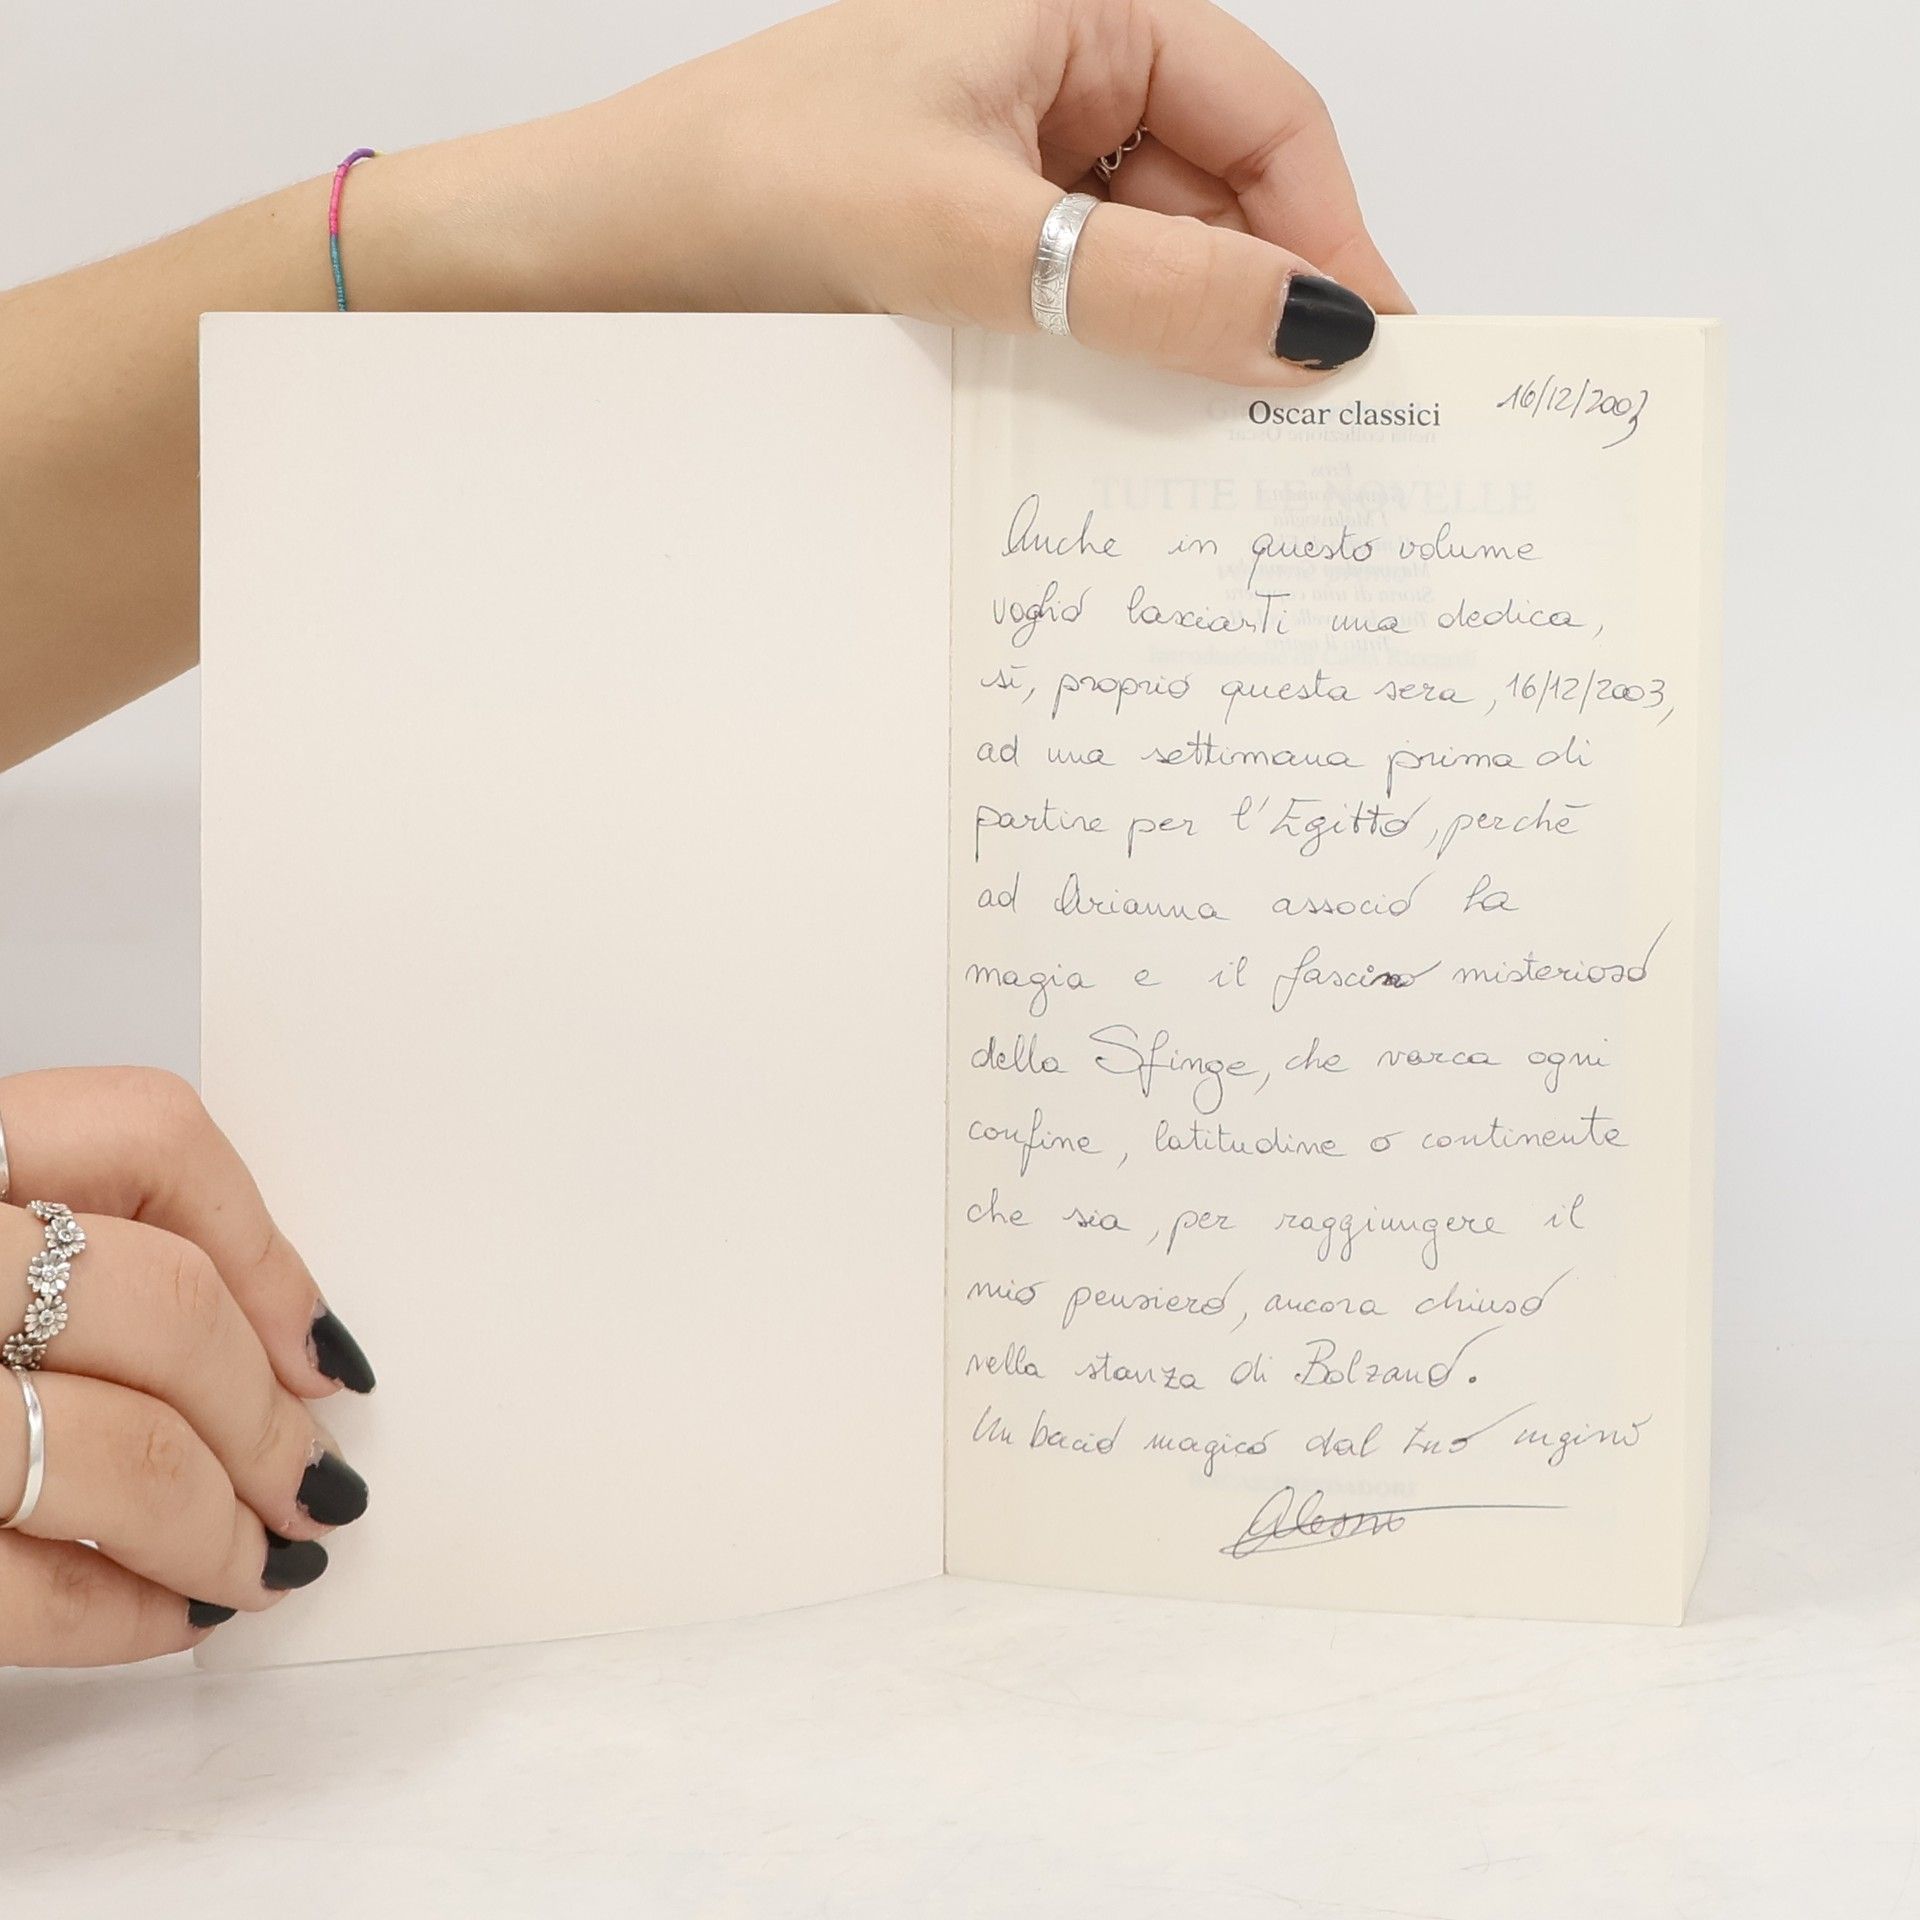 Oscar classici 16/12/2003
TUTTE LE NOVELLE
Anche in questo volume
voglio lasciarTi una dedica,
sì, proprio questa sera, 16/12/2003,
ad una settimana prima di
partire per l'Egitto, perchè
ad Arianna associo la
magia e il fascino misterioso
della Sfinge, che varca ogni
confine, latitudine o continente
che sia, per raggiungere il
mio pensiero, ancora chiuso
nella stanza di Bolzano.
Un bacio magico dal tuo